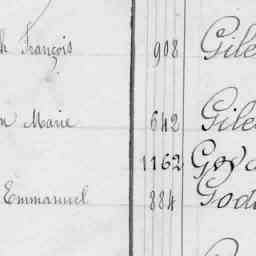 François 908 Gile
Marie 642 Gile
1162
Emmanuel 884 God